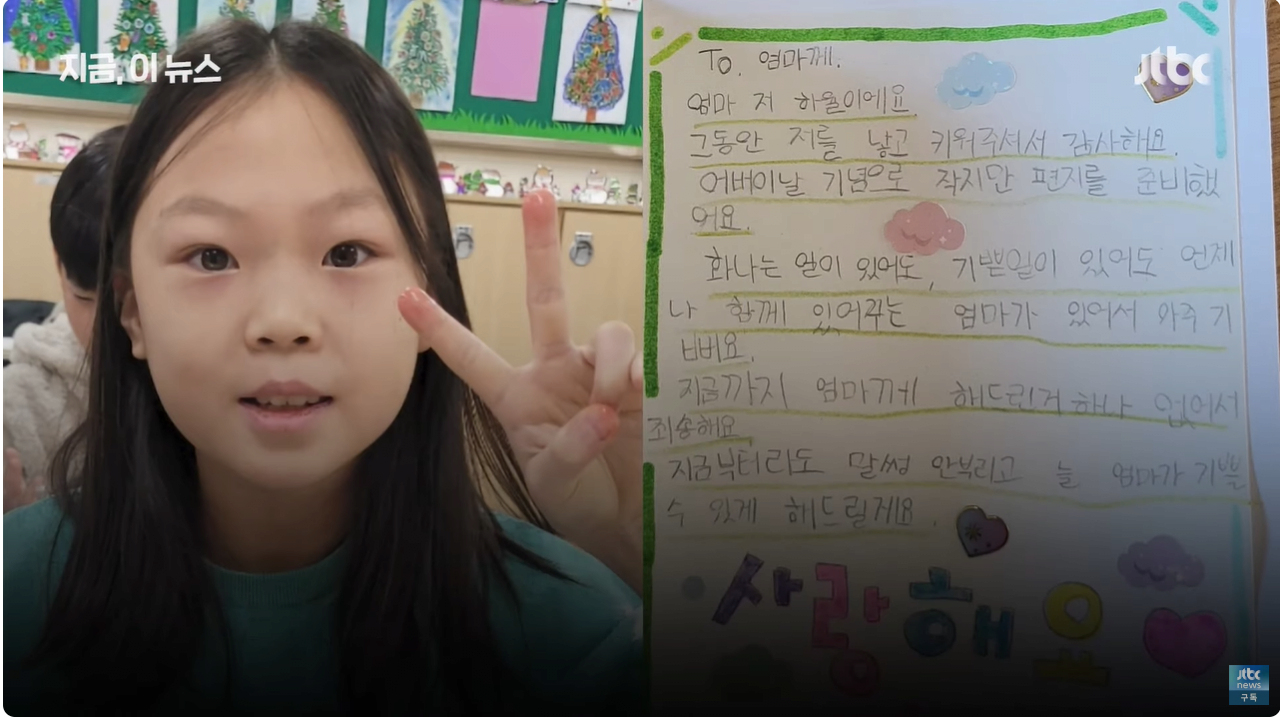 지금, 이 뉴스
jtbc
To. 엄마께.
엄마 저 하율이에요
그동안 저를 낳고 키워주셔서 감사해요.
어버이날 기념으로 작지만 편지를 준비했
어요.
화나는 일이 있어도, 기쁜일이 있어도 언제
나 함께 있어주는 엄마가 있어서 와주 기
뻐요.
지금까지 엄마께 해드린거 하나 없어서
죄송해요.
지금부터라도 말썽 안부리고 늘 엄마가 기쁠
수 있게 해드릴게요.
사랑해요
jtbc
news
구독